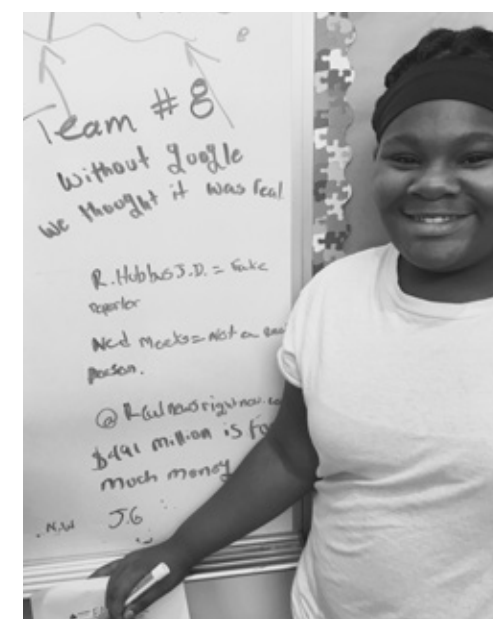 Team # 8
without google
we thought it was real.
R. Hubbus J.D. = Fake
reporter
Ned Meeks = Not a
person.
@ Realnewsrightnow.co
$491 million is
much money
N.W J.G